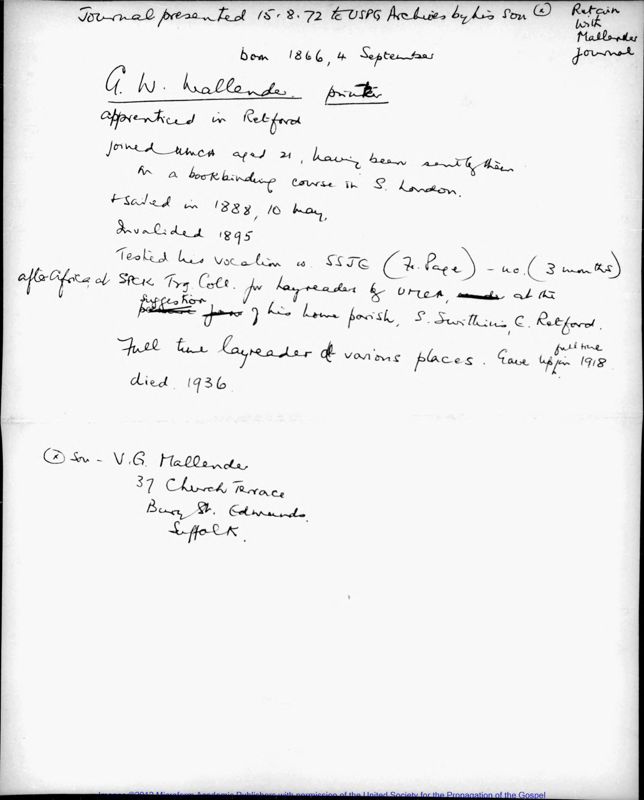 Journal presented 15.8.72 to USPG Archives by his son (x)
Retain
with
Mallender
journal
born 1866, 4 September
G. W. Mallender. printer
apprenticed in Retford
joined UMCA aged 21, having been sent by them
on a bookbinding course in S. London.
& sailed in 1888, 10 May.
Invalided 1895
Tested his vocation w. SSJE (Fr. Page) - no. (3 months)
after Africa, at SPCK Trg. Coll. for layreaders by UMCA, at the
suggestion of his home parish, S. Swithin's, E. Retford.
Full time layreader at various places. Gave up full time in 1918
died 1936
(x) Son - V.G. Mallender
37 Church Terrace
Bury St. Edmunds.
Suffolk.
Images ©2012 Microform Academic Publishers with permission of the United Society for the Propagation of the Gospel